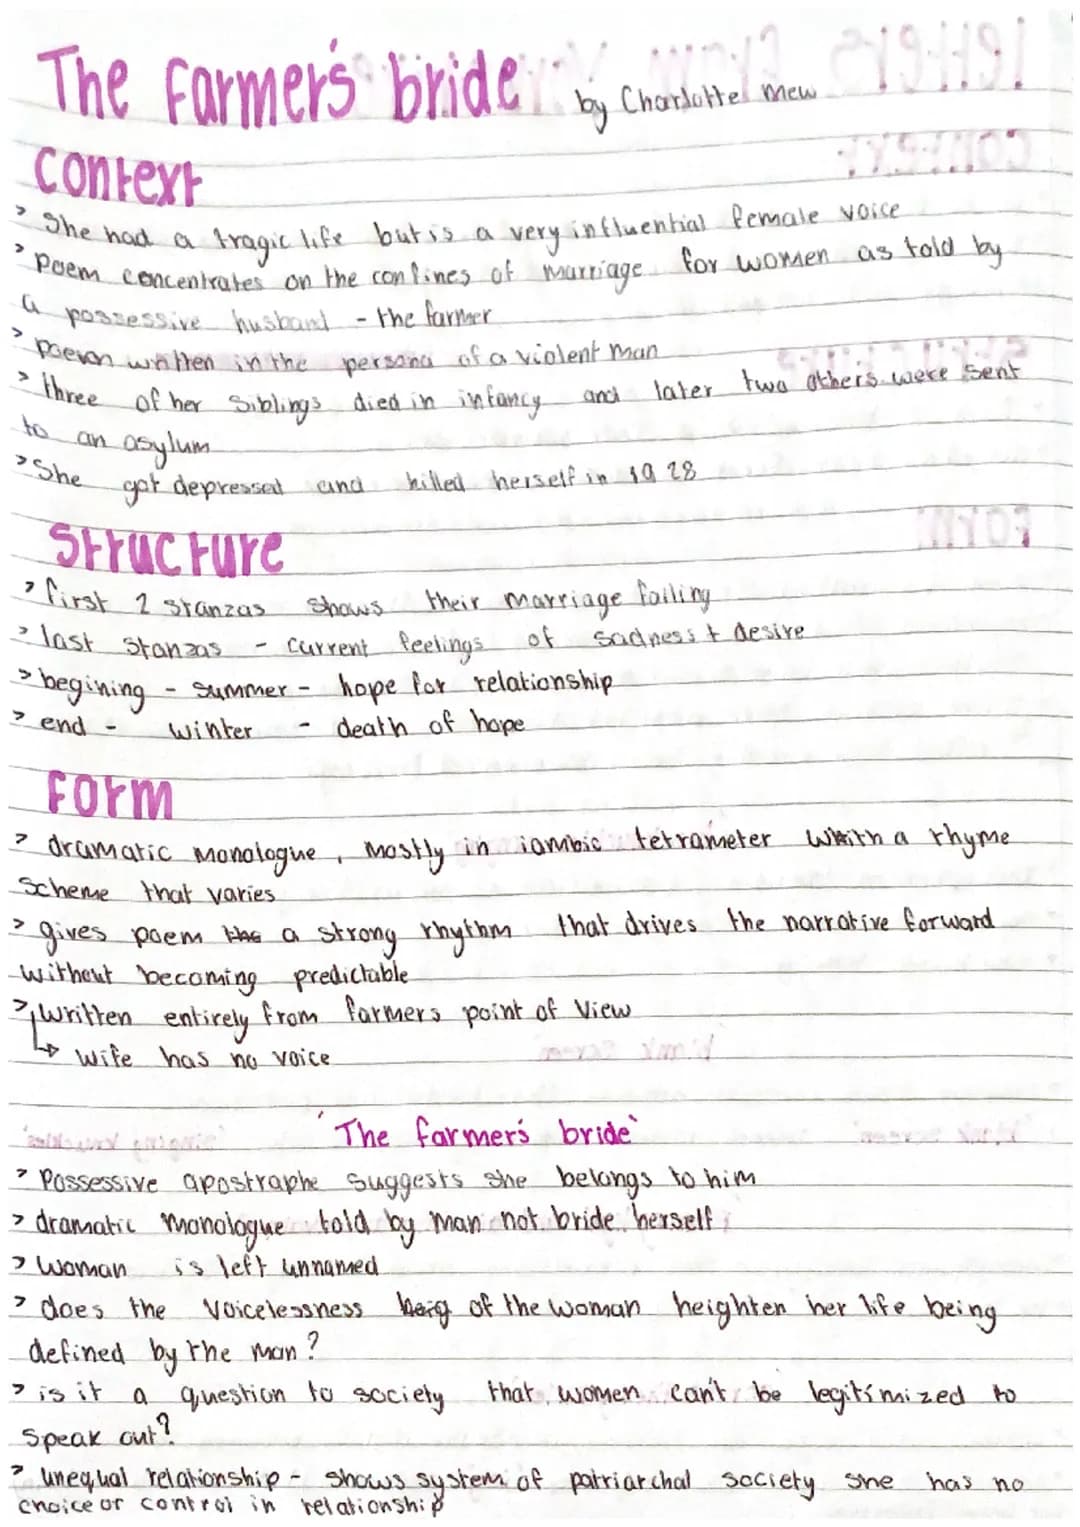 The farmer's bride by Charlotte Mew
Context
> She had a tragic life but is a very influential female voice
> poem concentrates on the confines of marriage for women as told by
a possessive husband - the farmer
> poem written in the persona of a violent man
> three of her siblings died in infancy and later two others were sent
to an asylum
> She got depressed and killed herself in 1928
Structure
> first 2 stanzas shows their marriage failing
> last stanzas - current feelings of sadness + desire
> begining - summer - hope for relationship
> end - winter - death of hope
Form
> dramatic monologue, mostly in iambic tetrameter with a rhyme
scheme that varies
> gives poem a strong rhythm that drives the narrative forward
without becoming predictable
> written entirely from farmers point of view
↳ wife has no voice
'The farmer's bride'
> Possessive apostraphe suggests she belongs to him
> dramatic monologue told by man not bride herself
> woman is left unnamed
> does the voicelessness of the woman heighten her life being
defined by the man?
> is it a question to society that women can't be legitimized to
speak out?
> unequal relationship - shows system of patriarchal society she has no
choice or control in relationship